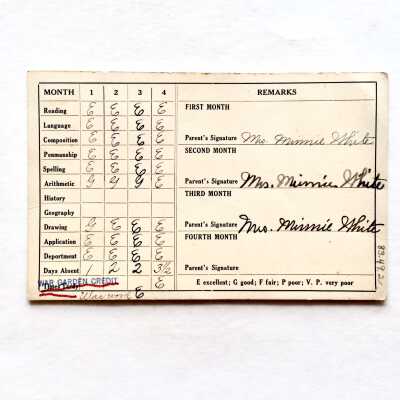 MONTH 1 2 3 4 REMARKS
Reading E E E E FIRST MONTH
Language E E E E
Composition E E E E Parent's Signature Mrs. Minnie White
Penmanship E E E E SECOND MONTH
Spelling E E E E
Arithmetic G G G E Parent's Signature Mrs. Minnie White
History THIRD MONTH
Geography
Drawing G E E E Parent's Signature Mrs. Minnie White
Application E E E E FOURTH MONTH
Department E E E E
Days Absent 1 2 2 3½ Parent's Signature
WAR GARDEN CREDIT E E excellent; G good; F fair; P poor; V. P. very poor
War work E
83.49.2